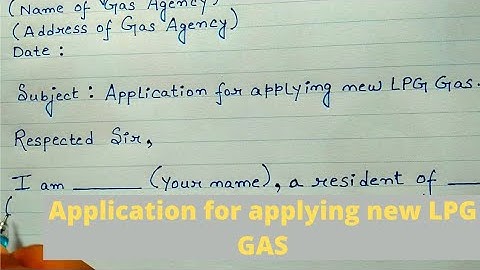 (Name of Gas Agency)
(Address of Gas Agency)
Date :
Subject : Application for applying new LPG Gas.
Respected Sir,
I am ______ (Your name), a resident of ___
(
Application for applying new LPG
GAS